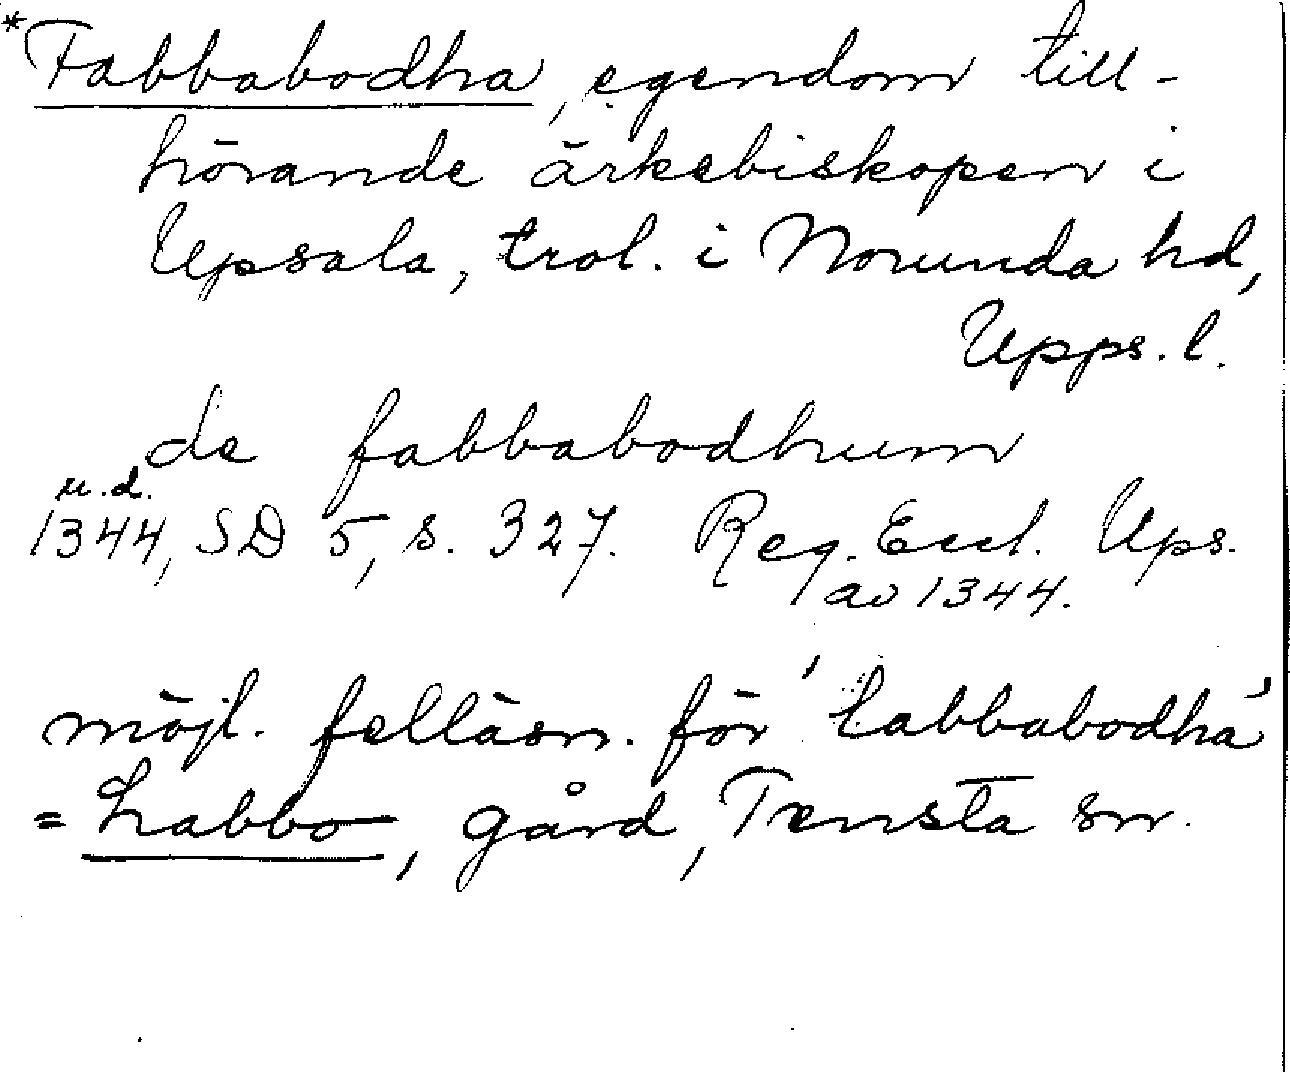 *Fabbabodha, egendom till-
hörande ärkebiskopen i
Upsala, trol. i Norunda hd,
Upps. l.
de fabbabodhum
u.d.
1344, SD 5, s. 327. Reg. Eccl. Ups.
av 1344.
möjl. felläsn. för 'labbabodha'
= Labbo, gård, Tensta sn.